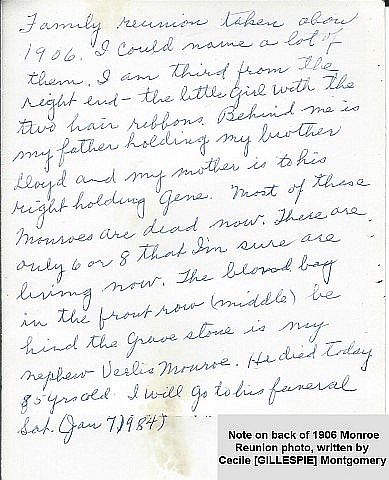 Family reunion taken about
1906. I could name a lot of
them. I am third from the
right end - the little girl with the
two hair ribbons. Behind me is
my father holding my brother
Lloyd and my mother is to his
right holding Gene. Most of these
Monroes are dead now. There are
only 6 or 8 that I'm sure are
living now. The blond boy
in the front row (middle) be
hind the grave stone is my
nephew Verlis Monroe. He died today
85 yrs old. I will go to his funeral
Sat. (Jan 7, 1984)
Note on back of 1906 Monroe
Reunion photo, written by
Cecile [GILLESPIE] Montgomery